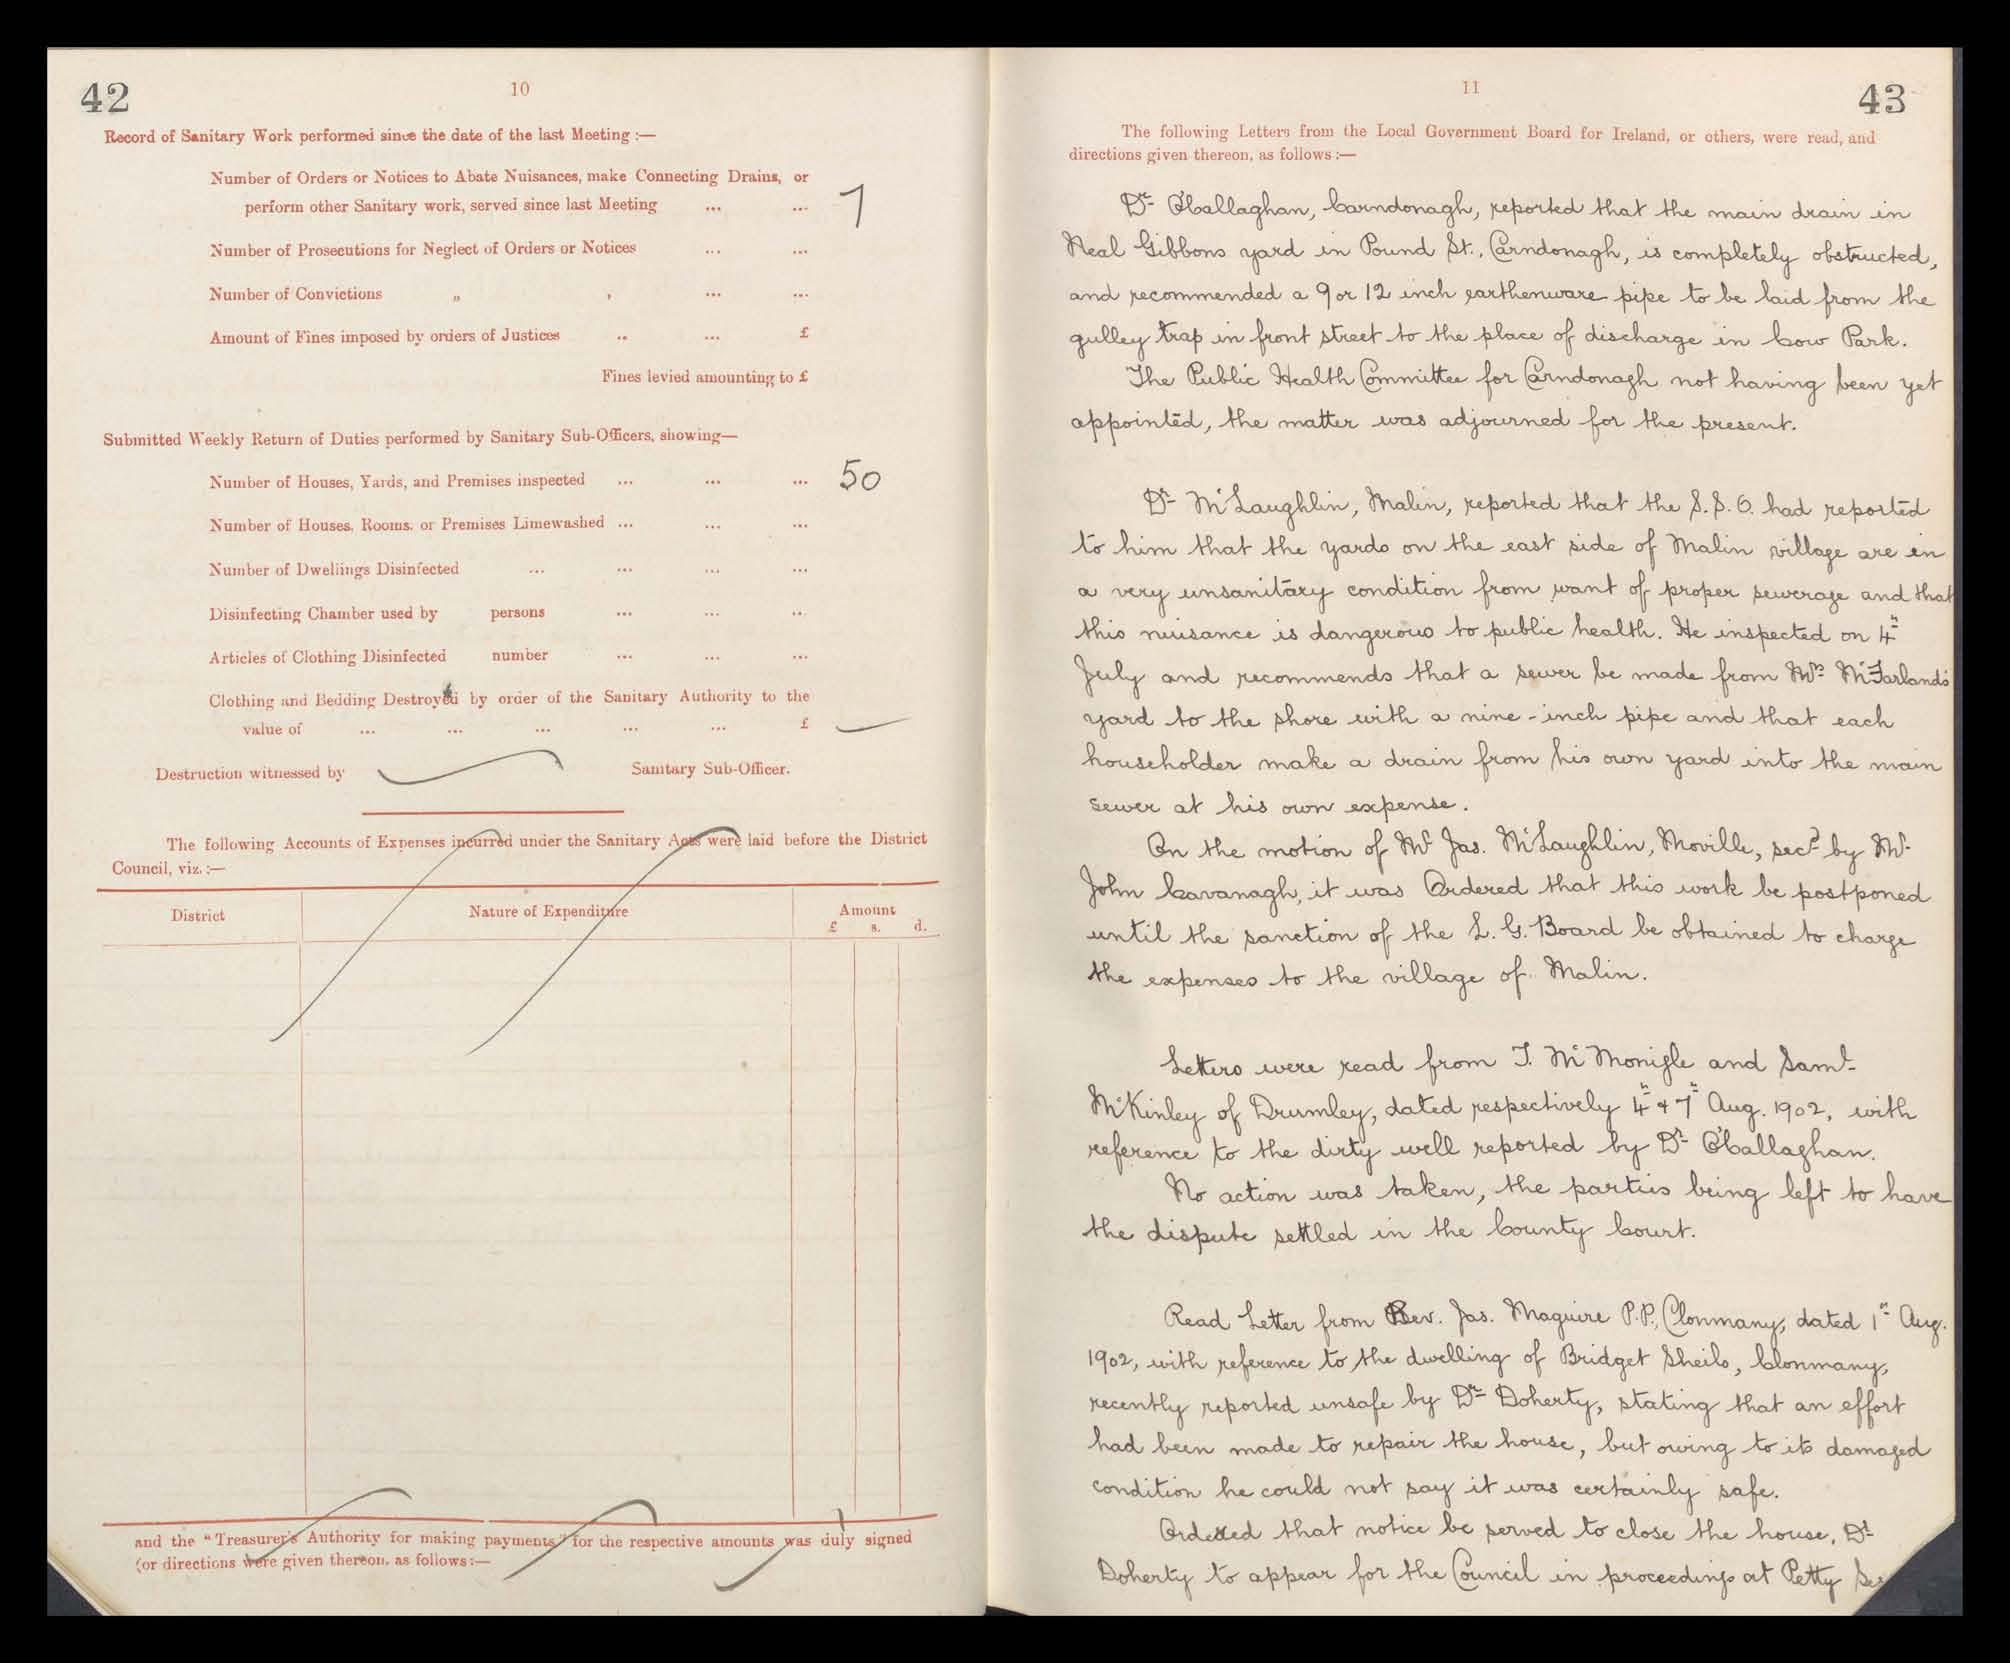 42
10
Record of Sanitary Work performed since the date of the last Meeting :—
Number of Orders or Notices to Abate Nuisances, make Connecting Drains, or
perform other Sanitary work, served since last Meeting ... ... 7
Number of Prosecutions for Neglect of Orders or Notices ... ...
Number of Convictions „ , ... ...
Amount of Fines imposed by orders of Justices .. ... £
Fines levied amounting to £
Submitted Weekly Return of Duties performed by Sanitary Sub-Officers, showing—
Number of Houses, Yards, and Premises inspected ... ... ... 50
Number of Houses, Rooms, or Premises Limewashed ... ... ...
Number of Dwellings Disinfected ... ... ... ...
Disinfecting Chamber used by persons ... ... ...
Articles of Clothing Disinfected number ... ... ...
Clothing and Bedding Destroyed by order of the Sanitary Authority to the
value of ... ... ... ... ... £
Destruction witnessed by Sanitary Sub-Officer.
The following Accounts of Expenses incurred under the Sanitary Acts were laid before the District
Council, viz. :—
District Nature of Expenditure Amount
£ s. d.
and the "Treasurer's Authority for making payments" for the respective amounts was duly signed
(or directions were given thereon, as follows:—
11
43
The following Letters from the Local Government Board for Ireland, or others, were read, and
directions given thereon, as follows :—
Dr O'Callaghan, Carndonagh, reported that the main drain in
Neal Gibbons yard in Pound St., Carndonagh, is completely obstructed,
and recommended a 9 or 12 inch earthenware pipe to be laid from the
gulley trap in front street to the place of discharge in Cow Park.
The Public Health Committee for Carndonagh not having been yet
appointed, the matter was adjourned for the present.
Dr McLaughlin, Malin, reported that the S.S.O. had reported
to him that the yards on the east side of Malin village are in
a very unsanitary condition from want of proper sewerage and that
this nuisance is dangerous to public health. He inspected on 4"
July and recommends that a sewer be made from Mrs McFarland's
yard to the shore with a nine-inch pipe and that each
householder make a drain from his own yard into the main
sewer at his own expense.
On the motion of Mr Jas. McLaughlin, Moville, secd by Mr
John Cavanagh, it was Ordered that this work be postponed
until the sanction of the L. G. Board be obtained to charge
the expenses to the village of Malin.
Letters were read from T. McMonigle and Saml
McKinley of Drumley, dated respectively 4" & 7" Aug. 1902, with
reference to the dirty well reported by Dr O'Callaghan.
No action was taken, the parties being left to have
the dispute settled in the County Court.
Read Letter from Rev. Jas. Maguire P.P., Clonmany, dated 1st Aug.
1902, with reference to the dwelling of Bridget Sheils, Clonmany,
recently reported unsafe by Dr Doherty, stating that an effort
had been made to repair the house, but owing to its damaged
condition he could not say it was certainly safe.
Ordered that notice be served to close the house, Dr
Doherty to appear for the Council in proceedings at Petty Ses